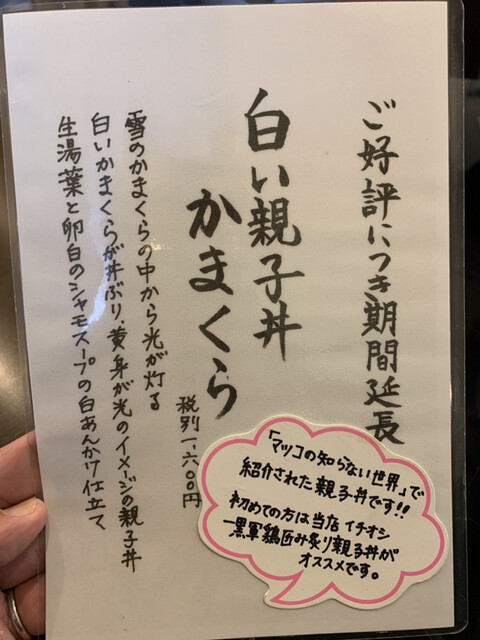 ご好評につき期間延長
白い親子丼
かまくら
税別一、六〇〇円
雪のかまくらの中から光が灯る
白いかまくらが丼ぶり、黄身が光のイメージの親子丼
生湯葉と卵白のシャモスープの白あんかけ仕立て
「マツコの知らない世界」で
紹介された親子丼です!!
初めての方は当店イチオシ
黒軍鶏匠み炙り親子丼が
オススメです。